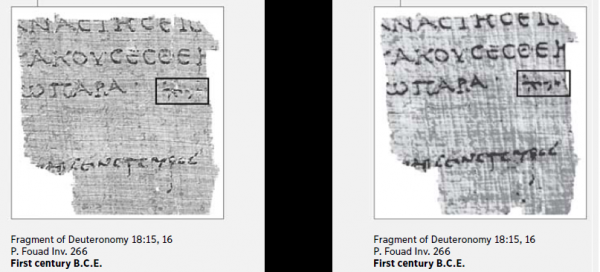 ΑΝΑϹΤΗϹΕΙ
ΑΚΟΥϹΕϹΘΕ
ΠΑΡΑ יהוה
Fragment of Deuteronomy 18:15, 16
P. Fouad Inv. 266
First century B.C.E.
ΑΝΑϹΤΗϹΕΙ
ΑΚΟΥϹΕϹΘΕ
ΠΑΡΑ יהוה
Fragment of Deuteronomy 18:15, 16
P. Fouad Inv. 266
First century B.C.E.